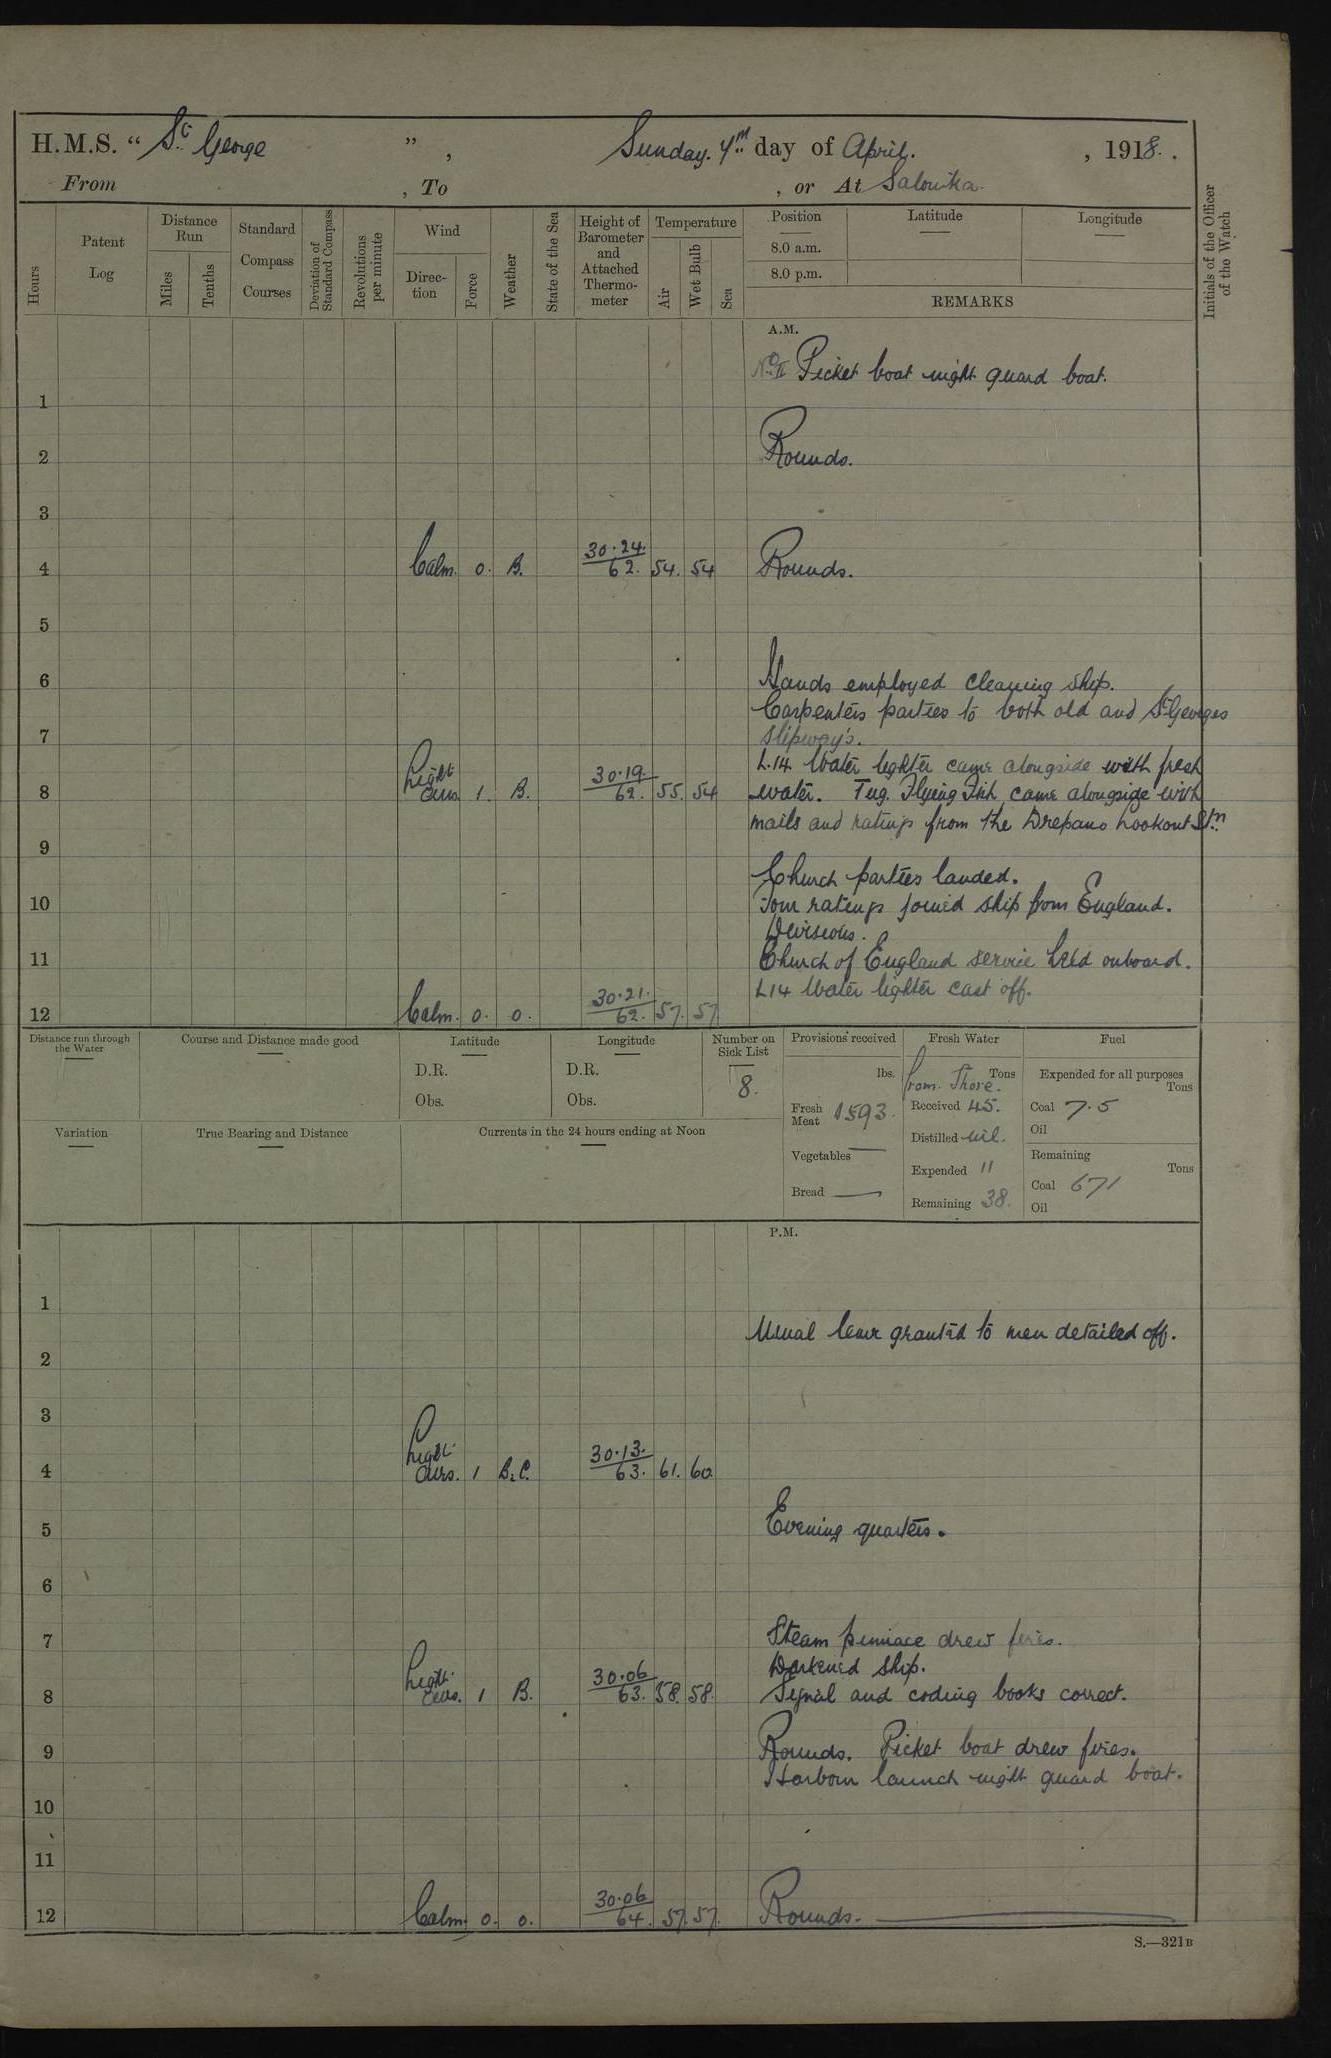 H.M.S. “ St. George ” , Sunday. 7th day of April. , 1918.
From , To , or At Salonika.
Hours
Patent Log
Distance Run
Miles
Tenths
Standard Compass Courses
Deviation of Standard Compass
Revolutions per minute
Wind
Direction
Force
Weather
State of the Sea
Height of Barometer and Attached Thermometer
Temperature
Air
Wet Bulb
Sea
Position
Latitude
Longitude
8.0 a.m.
8.0 p.m.
REMARKS
Initials of the Officer of the Watch
A.M.
No. II Picket boat night guard boat.
1
2 Rounds.
3
4 Calm. 0. B. 30.24. 62. 54. 54 Rounds.
5
6 Hands employed cleaning ship.
Carpenters parties to both old and St Georges
7 slipway's.
L.14 Water lighter came alongside with fresh
8 Light airs. 1. B. 30.19. 62. 55. 54 water. Tug. Flying Fish came alongside with
mails and ratings from the Drepano Lookout Stn
9
Church parties landed.
10 Four ratings joined ship from England.
Divisions.
11 Church of England service held onboard.
L14 Water lighter cast off.
12 Calm. 0. 0. 30.21. 62. 57. 57
Distance run through the Water
Course and Distance made good
Latitude
D.R.
Obs.
Longitude
D.R.
Obs.
Number on Sick List
8.
Provisions received
lbs.
Fresh Meat 1593.
Vegetables —
Bread —
Fresh Water
Tons
From Shore.
Received 45.
Distilled nil.
Expended 11
Remaining 38.
Fuel
Expended for all purposes
Tons
Coal 7.5
Oil
Remaining
Tons
Coal 671
Oil
Variation
True Bearing and Distance
Currents in the 24 hours ending at Noon
P.M.
1
Usual leave granted to men detailed off.
2
3
4 Light airs. 1 B.C. 30.13. 63. 61. 60
5 Evening quarters.
6
7 Steam pinnace drew fires.
Darkened ship.
8 Light airs. 1 B. 30.06 63. 58. 58. Signal and coding books correct.
9 Rounds. Picket boat drew fires.
Harbour launch night guard boat.
10
11
12 Calm 0. 0. 30.06 64. 57. 57. Rounds.
S.—321B